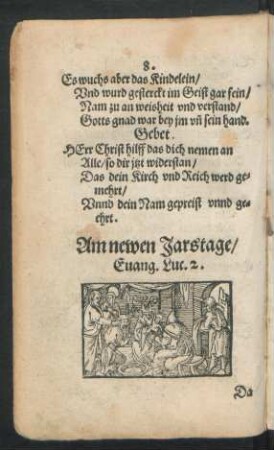 8.
Es wuchs aber das Kindelein/
Vnd wurd gesterckt im Geist gar fein/
Nam zu an weisheit vnd verstand/
Gotts gnad war bey jm vñ sein hand.
Gebet.
HErr Christ hilff das dich nemen an
Alle/ so dir jtzt widerstan/
Das dein Kirch vnd Reich werd ge-
mehrt/
Vnnd dein Nam gepreist vnnd ge-
ehrt.
Am newen Jarstage/
Euang. Luc. 2.
Da